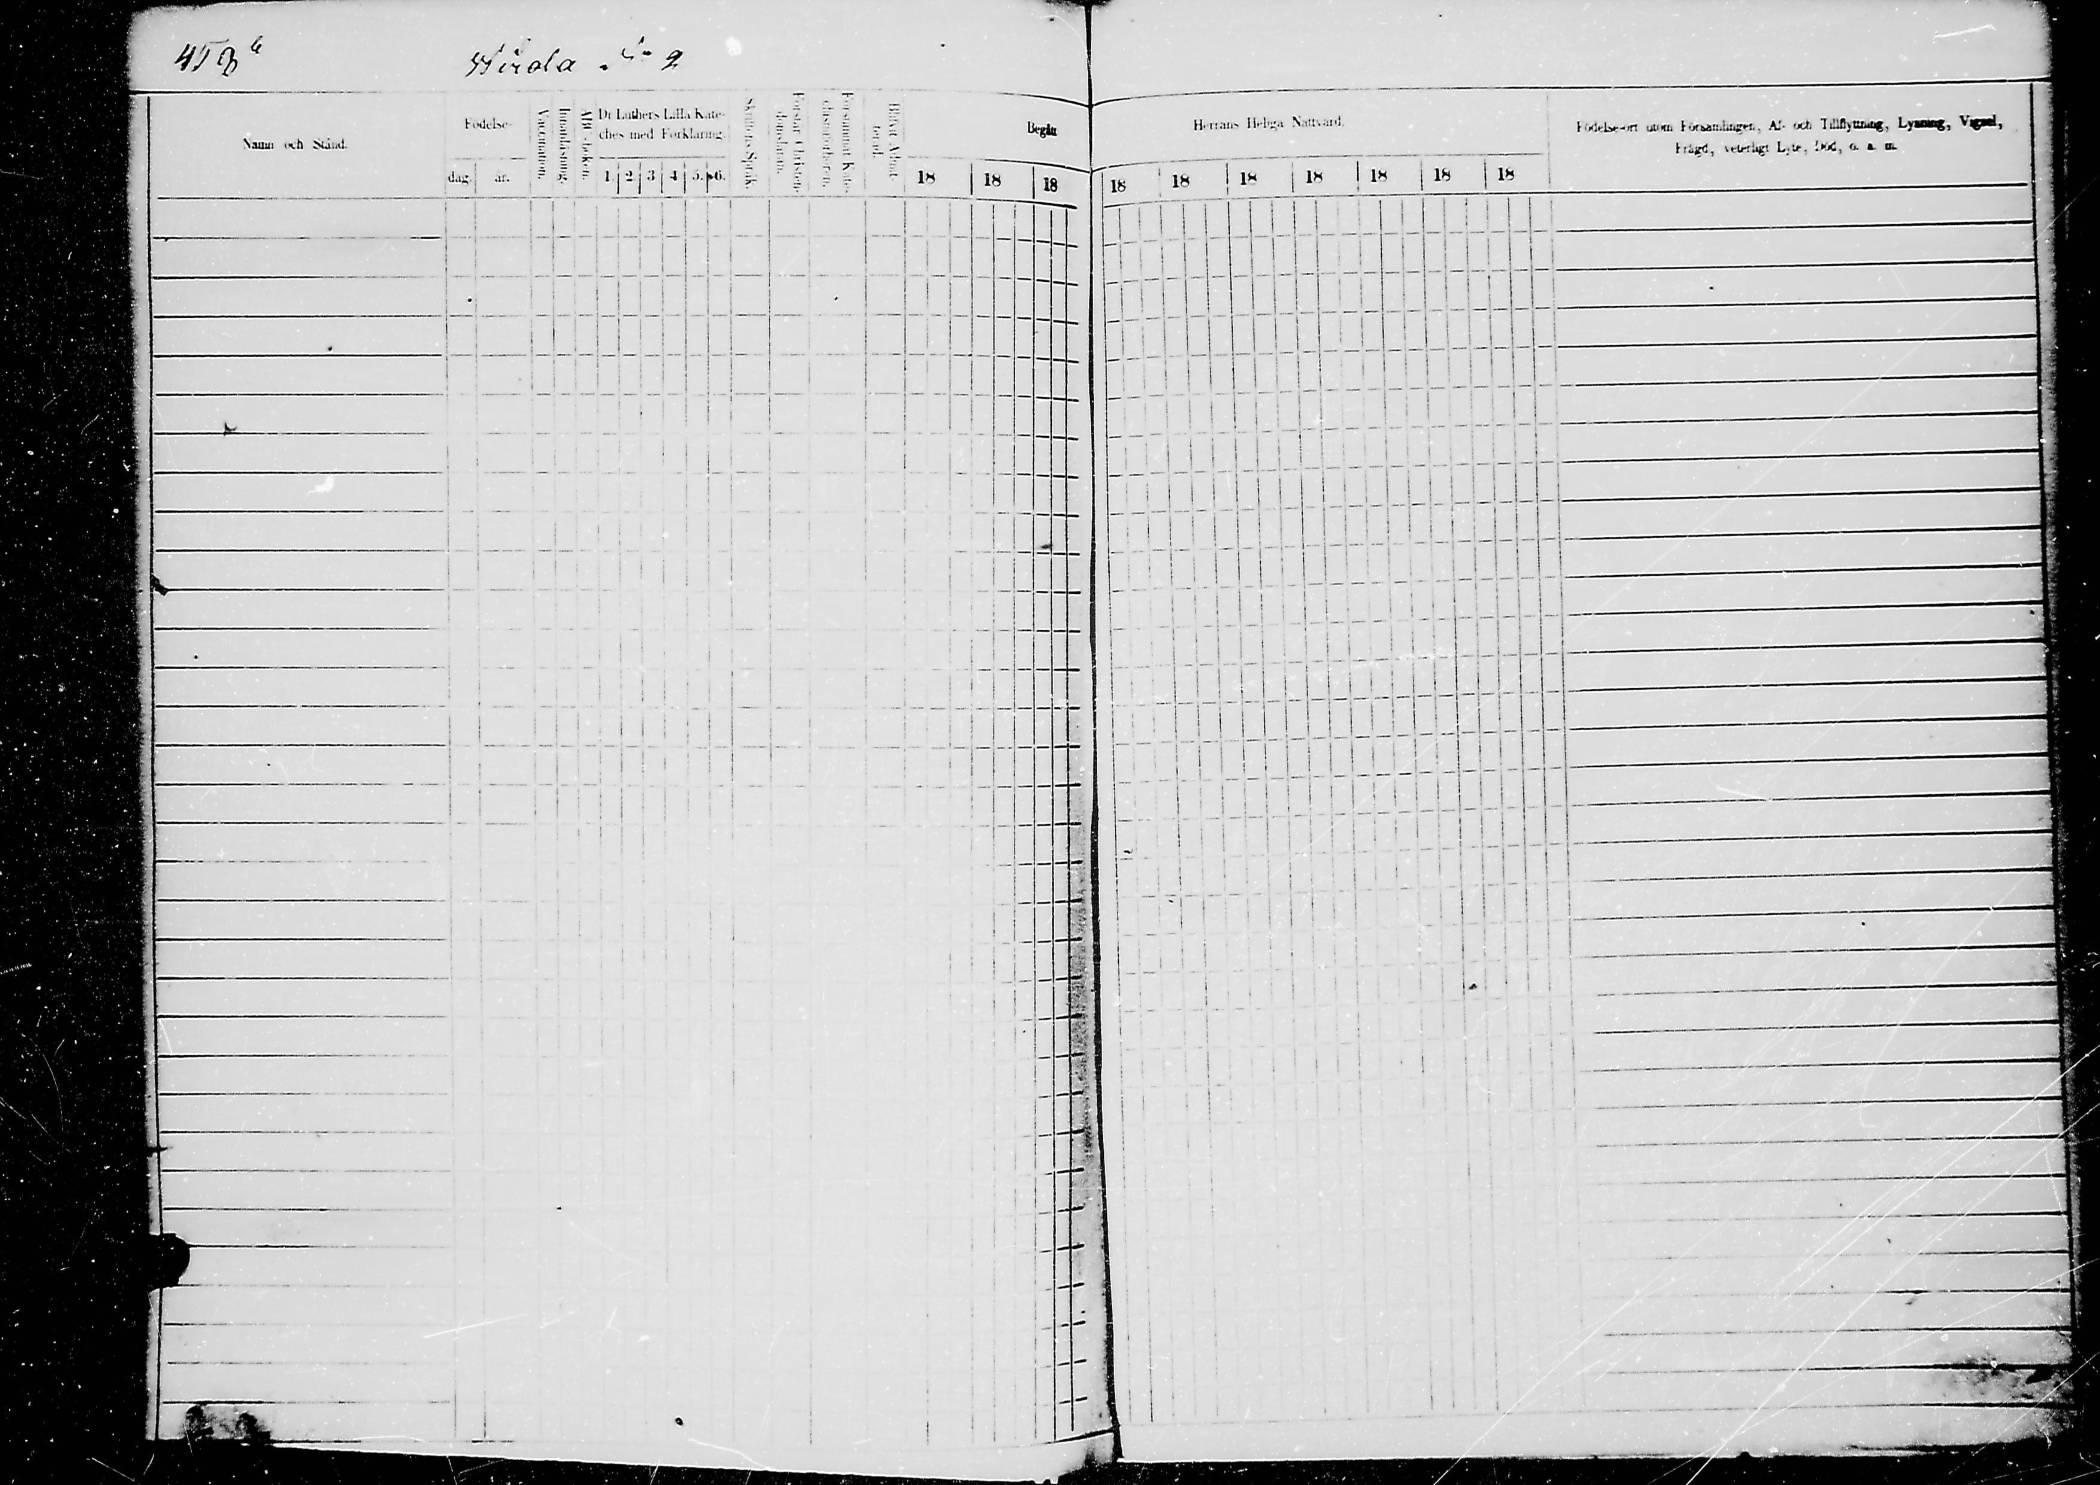 Namn och Stånd.
Födelse-
dag.
år.
Vaccination.
Innanläsning.
ABC-boken.
Dr Luthers Lilla Kate-
ches med Förklaring.
1. 2 3 4 5. 6.
Skriftens Språk.
Förstår Christen-
domsläran.
Försummat Kate-
chismiförhören.
Blifvit Admit-
terad.
Begått
18 18 18
Herrans Heliga Nattvard.
18 18 18 18 18 18 18
Födelse-ort utom Församlingen, Af- och Tillflyttning, Lysning, Vigsel,
Frägd, veterligt Lyte, Död, o. s. m.